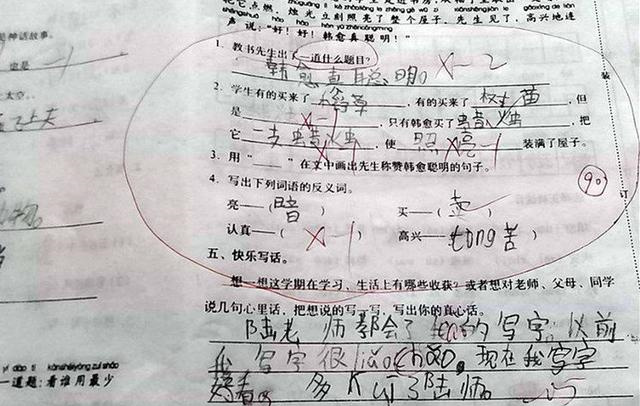 花它点燃，烛光立刻照亮了整个屋子。先生见了，高兴地连
声说："好！好！韩愈真聪明！"
是神话故事。
1. 教书先生出了一道什么题目？
韩愈真聪明。 ×-2
2. 学生有的买来了 稻草 ，有的买来了 树苗 ，但
是 ×-1 ，只有韩愈买了 蜡烛 ，把
它 一支蜡火虫 ，使 照亮 装满了屋子。
×-1
3. 用"——"在文中画出先生称赞韩愈聪明的句子。
4. 写出下列词语的反义词。
90
亮——（暗） 买——（卖）
认真——（×-1） 高兴——（tong苦）
五、快乐写话。
想一想这学期在学习、生活上有哪些收获？或者想对老师、父母、同学
说几句心里话，把想说的写一写，写出你的真心话。
陆老师都会了 的写字。以前
我写字很liǎo cǎo。现在我写字
好看。多 了陆师。
yí dào tí kàn shéi yòng zuì shǎo
一道题：看谁用最少
装
订